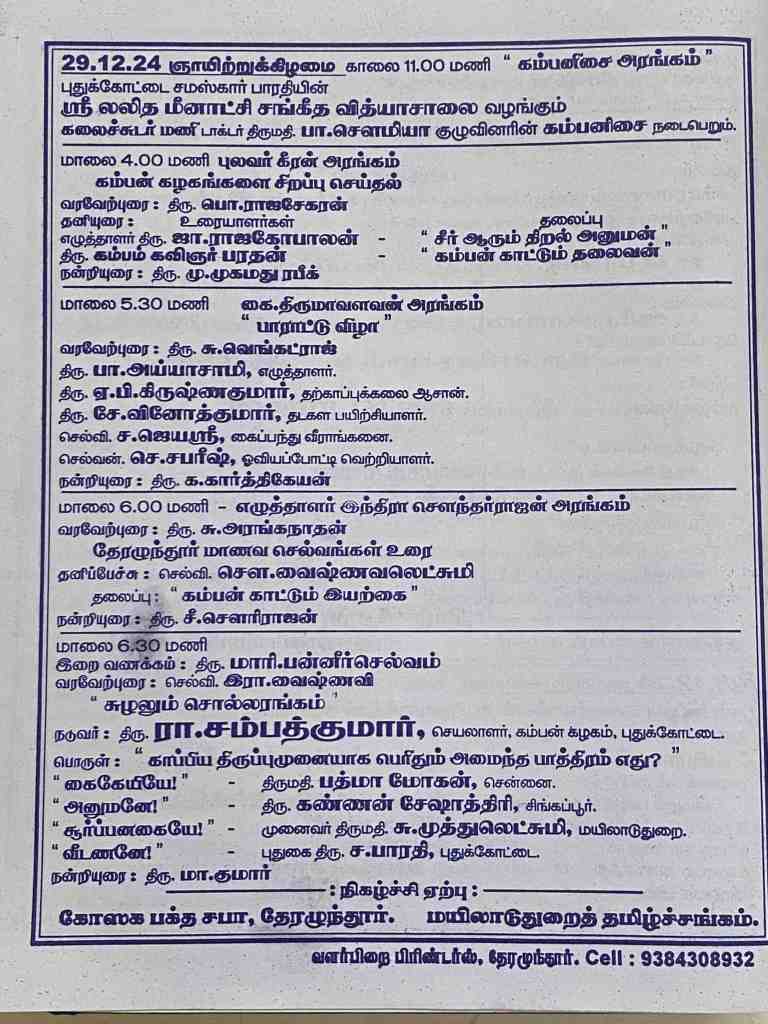 29.12.24 ஞாயிற்றுக்கிழமை காலை 11.00 மணி “ கம்பனிசை அரங்கம் ”
புதுக்கோட்டை சமஸ்கார் பாரதியின்
ஸ்ரீ லலித மீனாட்சி சங்கீத வித்யாசாலை வழங்கும்
கலைச்சுடர் மணி டாக்டர் திருமதி. பா.சௌமியா குழுவினரின் கம்பனிசை நடைபெறும்.
மாலை 4.00 மணி புலவர் கீரன் அரங்கம்
கம்பன் கழகங்களை சிறப்பு செய்தல்
வரவேற்புரை : திரு. பொ.ராஜசேகரன்
தனியுரை : உரையாளர்கள் தலைப்பு
எழுத்தாளர் திரு. ஜா.ராஜகோபாலன் - “ சீர் ஆரும் திறல் அனுமன் ”
திரு. கம்பம் கவிஞர் பரதன் - “ கம்பன் காட்டும் தலைவன் ”
நன்றியுரை : திரு. மு.முகமது ரபீக்
மாலை 5.30 மணி கை.திருமாவளவன் அரங்கம்
“ பாராட்டு விழா ”
வரவேற்புரை : திரு. சு.வெங்கட்ராஜ்
திரு. பா.அய்யாசாமி, எழுத்தாளர்.
திரு. ஏ.பி.கிருஷ்ணகுமார், தற்காப்புக்கலை ஆசான்.
திரு. சே.வினோத்குமார், தடகள பயிற்சியாளர்.
செல்வி. ச.ஜெயஸ்ரீ, கைப்பந்து வீராங்கனை.
செல்வன். செ.சபரீஷ், ஓவியப்போட்டி வெற்றியாளர்.
நன்றியுரை : திரு. க.கார்த்திகேயன்
மாலை 6.00 மணி - எழுத்தாளர் இந்திரா சௌந்தர்ராஜன் அரங்கம்
வரவேற்புரை : திரு. சு.அரங்கநாதன்
தேரழுந்தூர் மாணவ செல்வங்கள் உரை
தனிப்பேச்சு : செல்வி. சௌ.வைஷ்ணவலெட்சுமி
தலைப்பு : “ கம்பன் காட்டும் இயற்கை ”
நன்றியுரை : திரு. சீ.சௌரிராஜன்
மாலை 6.30 மணி
இறை வணக்கம் : திரு. மாரி.பன்னீர்செல்வம்
வரவேற்புரை : செல்வி. இரா.வைஷ்ணவி
“ சுழலும் சொல்லரங்கம் ”
நடுவர் : திரு. ரா.சம்பத்குமார், செயலாளர், கம்பன் கழகம், புதுக்கோட்டை.
பொருள் : “ காப்பிய திருப்புமுனையாக பெரிதும் அமைந்த பாத்திரம் எது? ”
“ கைகேயியே! ” - திருமதி. பத்மா மோகன், சென்னை.
“ அனுமனே! ” - திரு. கண்ணன் சேஷாத்திரி, சிங்கப்பூர்.
“ சூர்ப்பனகையே! ” - முனைவர் திருமதி. சு.முத்துலெட்சுமி, மயிலாடுதுறை.
“ வீடணனே! ” - புதுகை திரு. ச.பாரதி, புதுக்கோட்டை.
நன்றியுரை : திரு. மா.குமார்
: நிகழ்ச்சி ஏற்பு :
கோஸக பக்த சபா, தேரழுந்தூர். மயிலாடுதுறைத் தமிழ்ச்சங்கம்.
வளர்பிறை பிரிண்டர்ஸ், தேரமுந்தூர். Cell : 9384308932